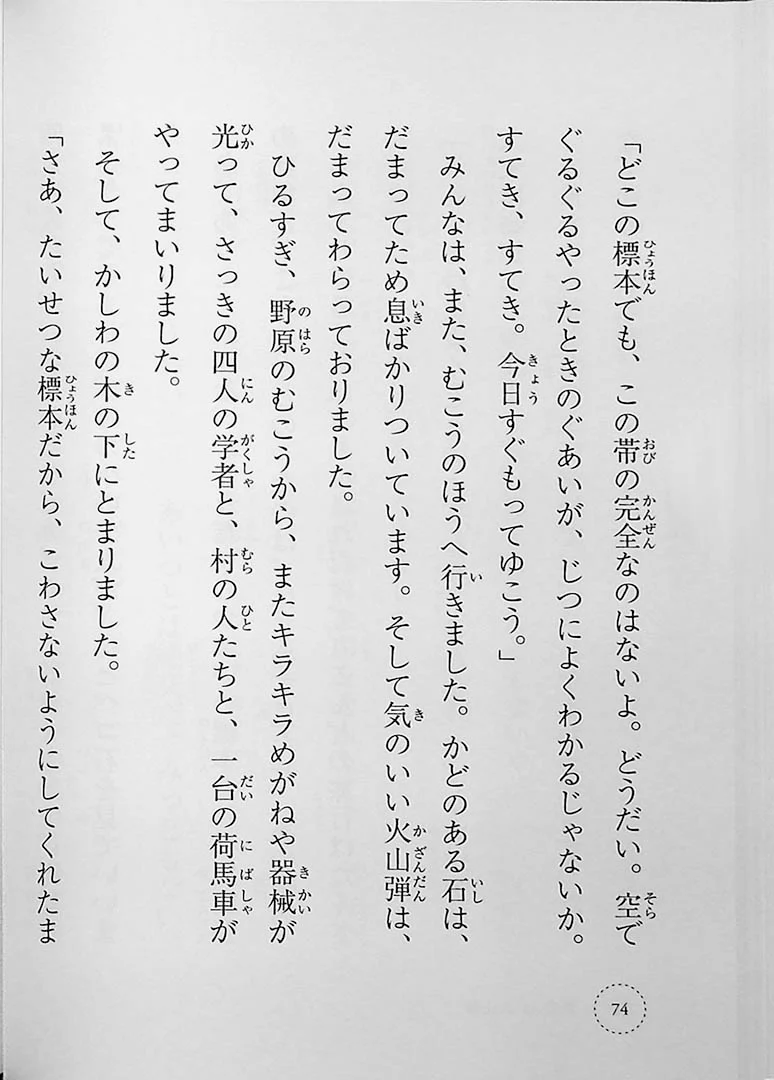 「どこの標本でも、この帯の完全なのはないよ。どうだい。空で
ぐるぐるやったときのぐあいが、じつによくわかるじゃないか。
すてき、すてき。今日すぐもってゆこう。」
みんなは、また、むこうのほうへ行きました。かどのある石は、
だまってため息ばかりついています。そして気のいい火山弾は、
だまってわらっておりました。
ひるすぎ、野原のむこうから、またキラキラめがねや器械が
光って、さっきの四人の学者と、村の人たちと、一台の荷馬車が
やってまいりました。
そして、かしわの木の下にとまりました。
「さあ、たいせつな標本だから、こわさないようにしてくれたま
74